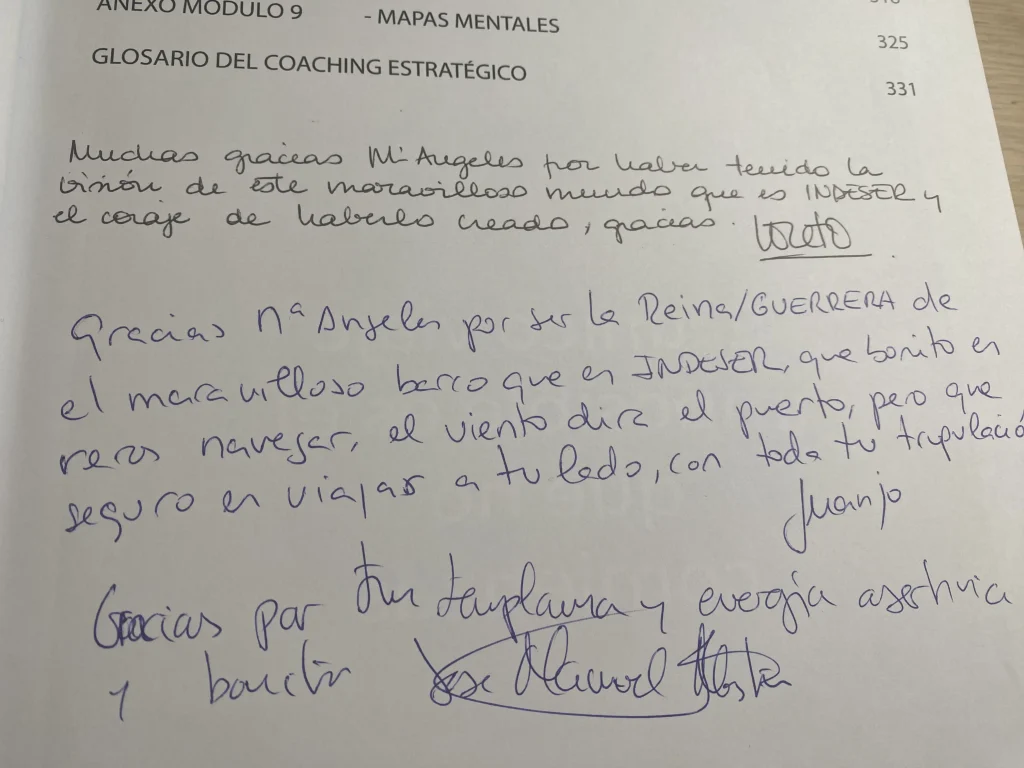 ANEXO MÓDULO 9 - MAPAS MENTALES
325
GLOSARIO DEL COACHING ESTRATÉGICO
331
Muchas gracias Mª Angeles por haber tenido la
visión de este maravilloso mundo que es INDESER y
el coraje de haberlo creado, gracias. Loreto
Gracias Mª Angeles por ser la Reina/GUERRERA de
el maravilloso barco que es INDESER, que bonito es
navegar, el viento dira el puerto, pero que
seguro es viajar a tu lado, con toda tu tripulació
Juanjo
Gracias por tu templanza y energía asertiva
y Jose Manuel